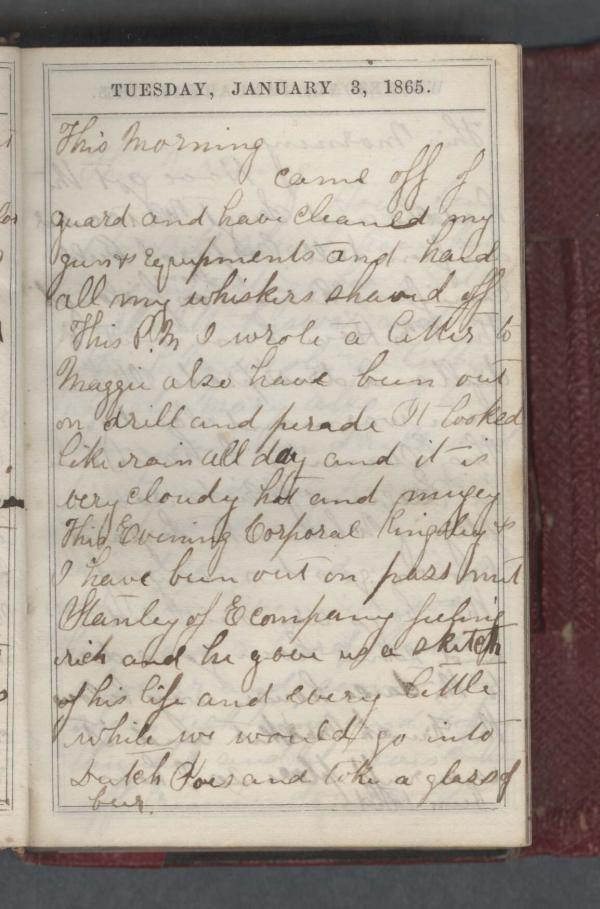 TUESDAY, JANUARY 3, 1865.
This Morning
came off of
guard and have cleaned my
gun & Equipments and had
all my whiskers shaved off
This P.M I wrote a letter to
Maggie also have been out
on drill and perade It looked
like rain all day and it is
very cloudy hot and mugey
This Evening Corporal Kingsley &
I have been out on pass met
Stanley of E company feeling
rich and he gave us a sketch
of his life and every little
while we would go into
Dutch Joes and take a glass of
beer.